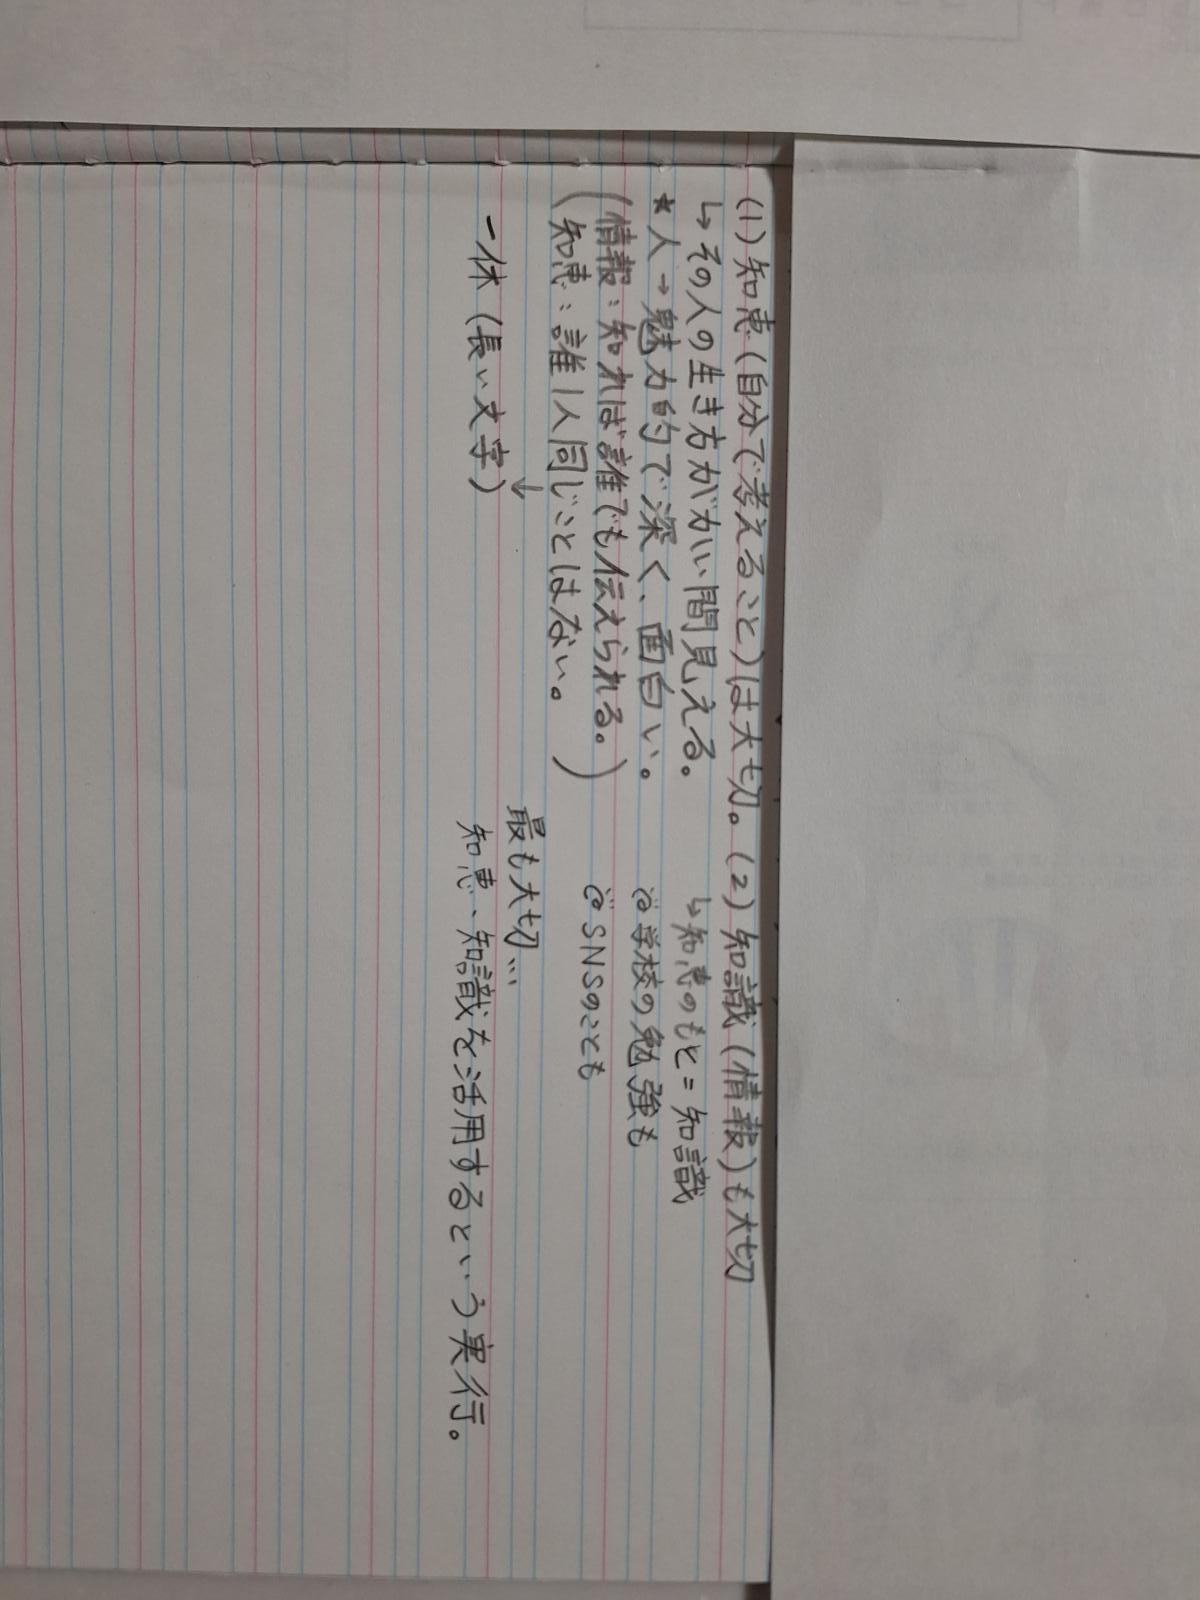 (1)知恵(自分で考えること)は大切。
↳その人の生き方がかい間見える。
*人→魅力的で深く、面白い。
(情報:知れば誰でも伝えられる。
知恵:誰1人同じことはない。)
↓
一休(長い文字)
(2)知識(情報)も大切
↳知恵のもと=知識
学校の勉強も
SNSのことも
最も大切…
知恵、知識を活用するという実行。